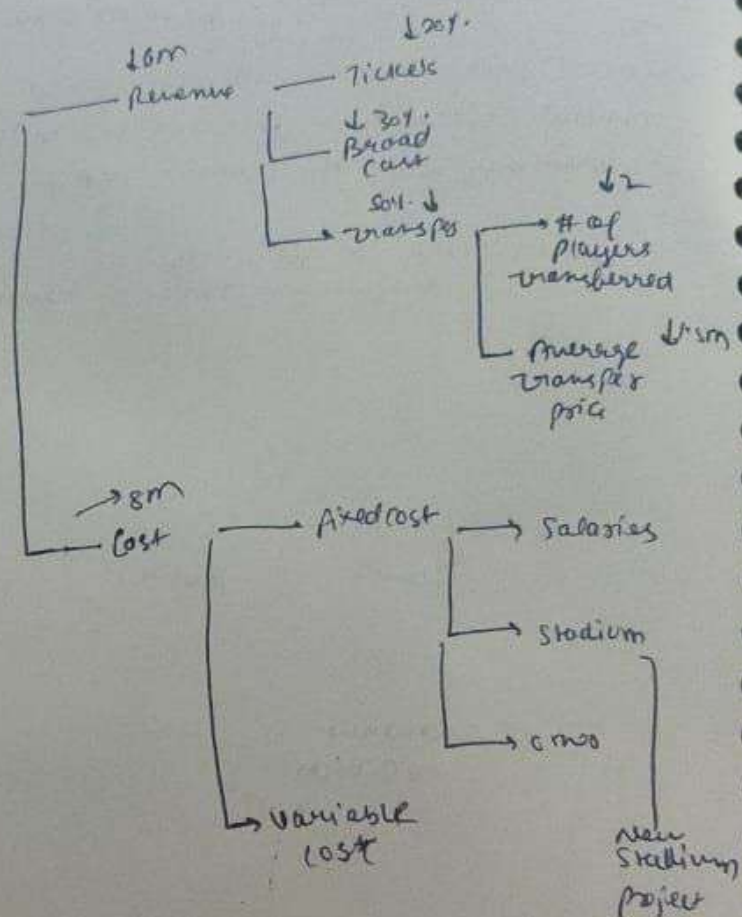 ↓ 20%.
↓ 6m
Revenue
Tickets
↓ 30%.
Broad
cast
50%. ↓
transfer
↓ 2
# of
players
transferred
Average
transfer
price
→ 8m
Cost
Fixed cost
Salaries
Stadium
Variable
cost
New
Stadium
project